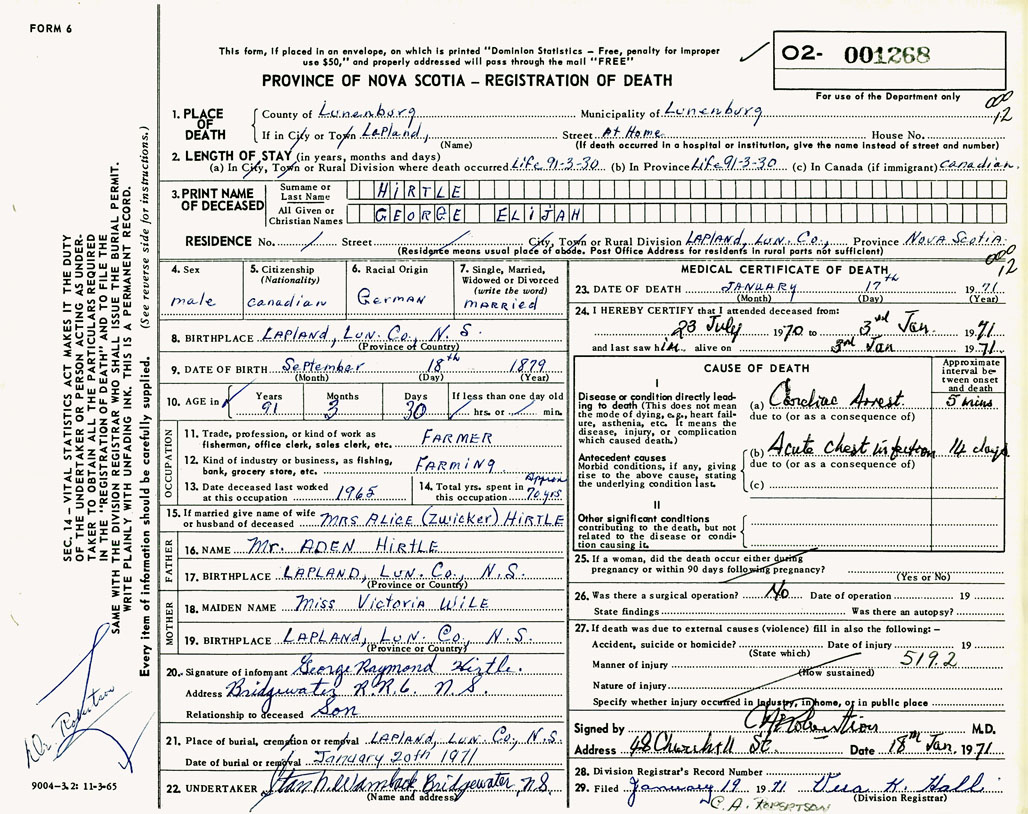 FORM 6
This form, if placed in an envelope, on which is printed "Dominion Statistics – Free, penalty for improper
use $50," and properly addressed will pass through the mail "FREE"
PROVINCE OF NOVA SCOTIA – REGISTRATION OF DEATH
O2- 001268
For use of the Department only
000
12
1. PLACE OF DEATH
County of Lunenburg Municipality of Lunenburg
If in City or Town Lapland, Street At Home House No.
(Name) (If death occurred in a hospital or institution, give the name instead of street and number)
2. LENGTH OF STAY (in years, months and days)
(a) In City, Town or Rural Division where death occurred Life 91-3-30 (b) In Province Life 91-3-30 (c) In Canada (if immigrant) Canadian.
3. PRINT NAME OF DECEASED
Surname or Last Name HIRTLE
All Given or Christian Names GEORGE ELIJAH
RESIDENCE No. / Street City, Town or Rural Division LAPLAND, LUN. CO., Province NOVA SCOTIA.
(Residence means usual place of abode. Post Office Address for residents in rural parts not sufficient)
000
12
4. Sex
male
5. Citizenship
(Nationality)
Canadian
6. Racial Origin
German
7. Single, Married,
Widowed or Divorced
(write the word)
MARRIED
8. BIRTHPLACE LAPLAND, LUN. CO., N.S.
(Province or Country)
9. DATE OF BIRTH September 18th 1879
(Month) (Day) (Year)
10. AGE in Years Months Days If less than one day old
91 3 30 hrs. or min.
OCCUPATION
11. Trade, profession, or kind of work as
fisherman, office clerk, sales clerk, etc. FARMER
12. Kind of industry or business, as fishing,
bank, grocery store, etc. FARMING
13. Date deceased last worked
at this occupation 1965
14. Total yrs. spent in
this occupation Approx 70 yrs.
15. If married give name of wife
or husband of deceased MRS ALICE (ZWICKER) HIRTLE
FATHER
16. NAME Mr. ADEN HIRTLE
17. BIRTHPLACE LAPLAND, LUN. CO., N.S.
(Province or Country)
MOTHER
18. MAIDEN NAME Miss Victoria WILE
19. BIRTHPLACE LAPLAND, LUN. CO., N.S.
(Province or Country)
20. Signature of informant George Raymond Hirtle.
Address Bridgewater R.R.6. N.S.
Relationship to deceased Son
21. Place of burial, cremation or removal LAPLAND, LUN. CO., N.S.
Date of burial or removal January 20th 1971
22. UNDERTAKER Bridgewater, N.S.
(Name and address)
MEDICAL CERTIFICATE OF DEATH
23. DATE OF DEATH JANUARY 17th 1971
(Month) (Day) (Year)
24. I HEREBY CERTIFY that I attended deceased from:
23 July 1970 to 3rd Jan. 1971
and last saw him alive on 3rd Jan 1971.
CAUSE OF DEATH
Approximate
interval between
onset
and death
I
Disease or condition directly leading
to death (This does not mean
the mode of dying, e.g., heart failure,
asthenia, etc. It means the
disease, injury, or complication
which caused death.)
(a) Cardiac Arrest. 5 mins
due to (or as a consequence of)
Antecedent causes
Morbid conditions, if any, giving
rise to the above cause, stating
the underlying condition last.
(b) Acute chest infection 14 days
due to (or as a consequence of)
(c)
II
Other significant conditions
contributing to the death, but not
related to the disease or condition
causing it.
25. If a woman, did the death occur either during
pregnancy or within 90 days following pregnancy?
(Yes or No)
26. Was there a surgical operation? No Date of operation 19
State findings Was there an autopsy?
27. If death was due to external causes (violence) fill in also the following: –
Accident, suicide or homicide? Date of injury 19
(State which)
Manner of injury 519.2
(How sustained)
Nature of injury
Specify whether injury occurred in industry, in home, or in public place
Signed by CA Robertson M.D.
Address 48 Churchill St. Date 18th Jan. 1971
28. Division Registrar's Record Number
29. Filed January 19 1971 Vera K. Hall
(Division Registrar)
C. A. ROBERTSON
SEC. 14 – VITAL STATISTICS ACT MAKES IT THE DUTY
OF THE UNDERTAKER OR PERSON ACTING AS UNDERTAKER
TO OBTAIN ALL THE PARTICULARS REQUIRED
IN THE "REGISTRATION OF DEATH" AND TO FILE THE
SAME WITH THE DIVISION REGISTRAR WHO SHALL ISSUE THE BURIAL PERMIT.
WRITE PLAINLY WITH UNFADING INK. THIS IS A PERMANENT RECORD.
Every item of information should be carefully supplied. (See reverse side for instructions.)
Dr Robertson
9004-3.2: 11-3-65